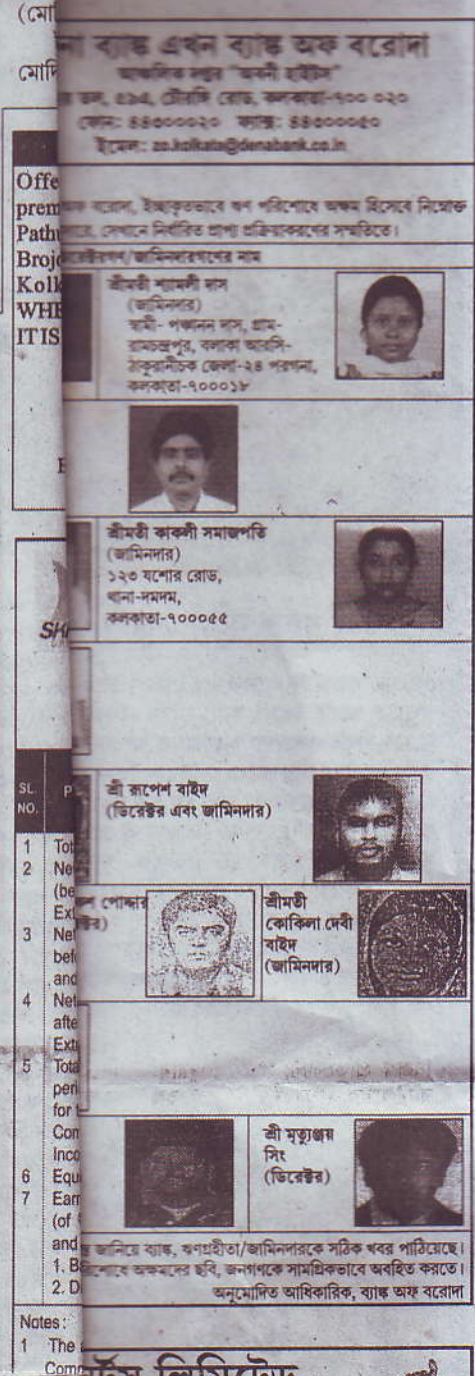 (মো
মোদি
Offe
prem
Path
Brojo
Kolk
WHE
IT IS
SL.
NO.
P
1 Tot
2 Ne
(be
Ext
3 Net
befo
and
4 Net
afte
Ext
5 Tota
peri
for t
Com
Inco
6 Equ
7 Earn
(of
and
1. B
2. D
Notes :
1 The
Comp
না ব্যাঙ্ক এখন ব্যাঙ্ক অফ বরোদা
আঞ্চলিক দপ্তর "অবনী হাইটস"
তল, ৫৯এ, চৌরঙ্গি রোড, কলকাতা-৭০০ ০২০
ফোন: ৪৪৩০০০২০ ফ্যাক্স: ৪৪৩০০০৫০
ইমেল: zo.kolkata@denabank.co.in
অফ বরোদা, ইচ্ছাকৃতভাবে ঋণ পরিশোধে অক্ষম হিসেবে নিম্নোক্ত
সেখানে নির্ধারিত প্রাপ্য প্রক্রিয়াকরণের সম্মতিতে।
রেক্টরগণ/জামিনদারগণের নাম
শ্রীমতী শ্যামলী দাস
(জামিনদার)
স্বামী- পঞ্চানন দাস, গ্রাম-
রামচন্দ্রপুর, বলাকা আরসি-
ঠাকুরানীচক জেলা-২৪ পরগনা,
কলকাতা-৭০০০১৮
শ্রীমতী কাকলী সমাজপতি
(জামিনদার)
১২৩ যশোর রোড,
থানা-দমদম,
কলকাতা-৭০০০৫৫
শ্রী রূপেশ বাইদ
(ডিরেক্টর এবং জামিনদার)
শ পোদ্দার
ক্টর)
শ্রীমতী
কোকিলা দেবী
বাইদ
(জামিনদার)
শ্রী মৃত্যুঞ্জয়
সিং
(ডিরেক্টর)
জানিয়ে ব্যাঙ্ক, ঋণগ্রহীতা/জামিনদারকে সঠিক খবর পাঠিয়েছে।
রিশোধে অক্ষমদের ছবি, জনগণকে সামগ্রিকভাবে অবহিত করতে।
অনুমোদিত আধিকারিক, ব্যাঙ্ক অফ বরোদা
লিমিটেড